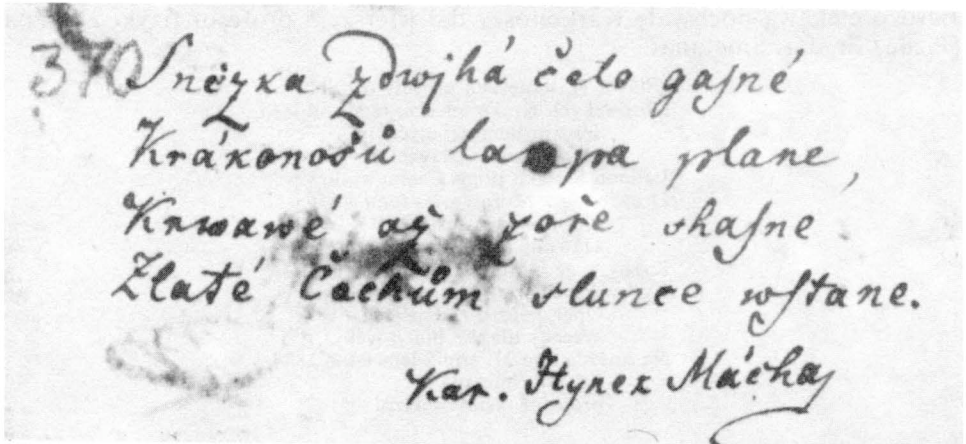 370 Sněžka zdwjhá čelo gasné
Krákonošů lampa plane,
Krwawé až zoře shasne
Zlaté Čechům slunce wstane.
Kar. Hynek Mácha